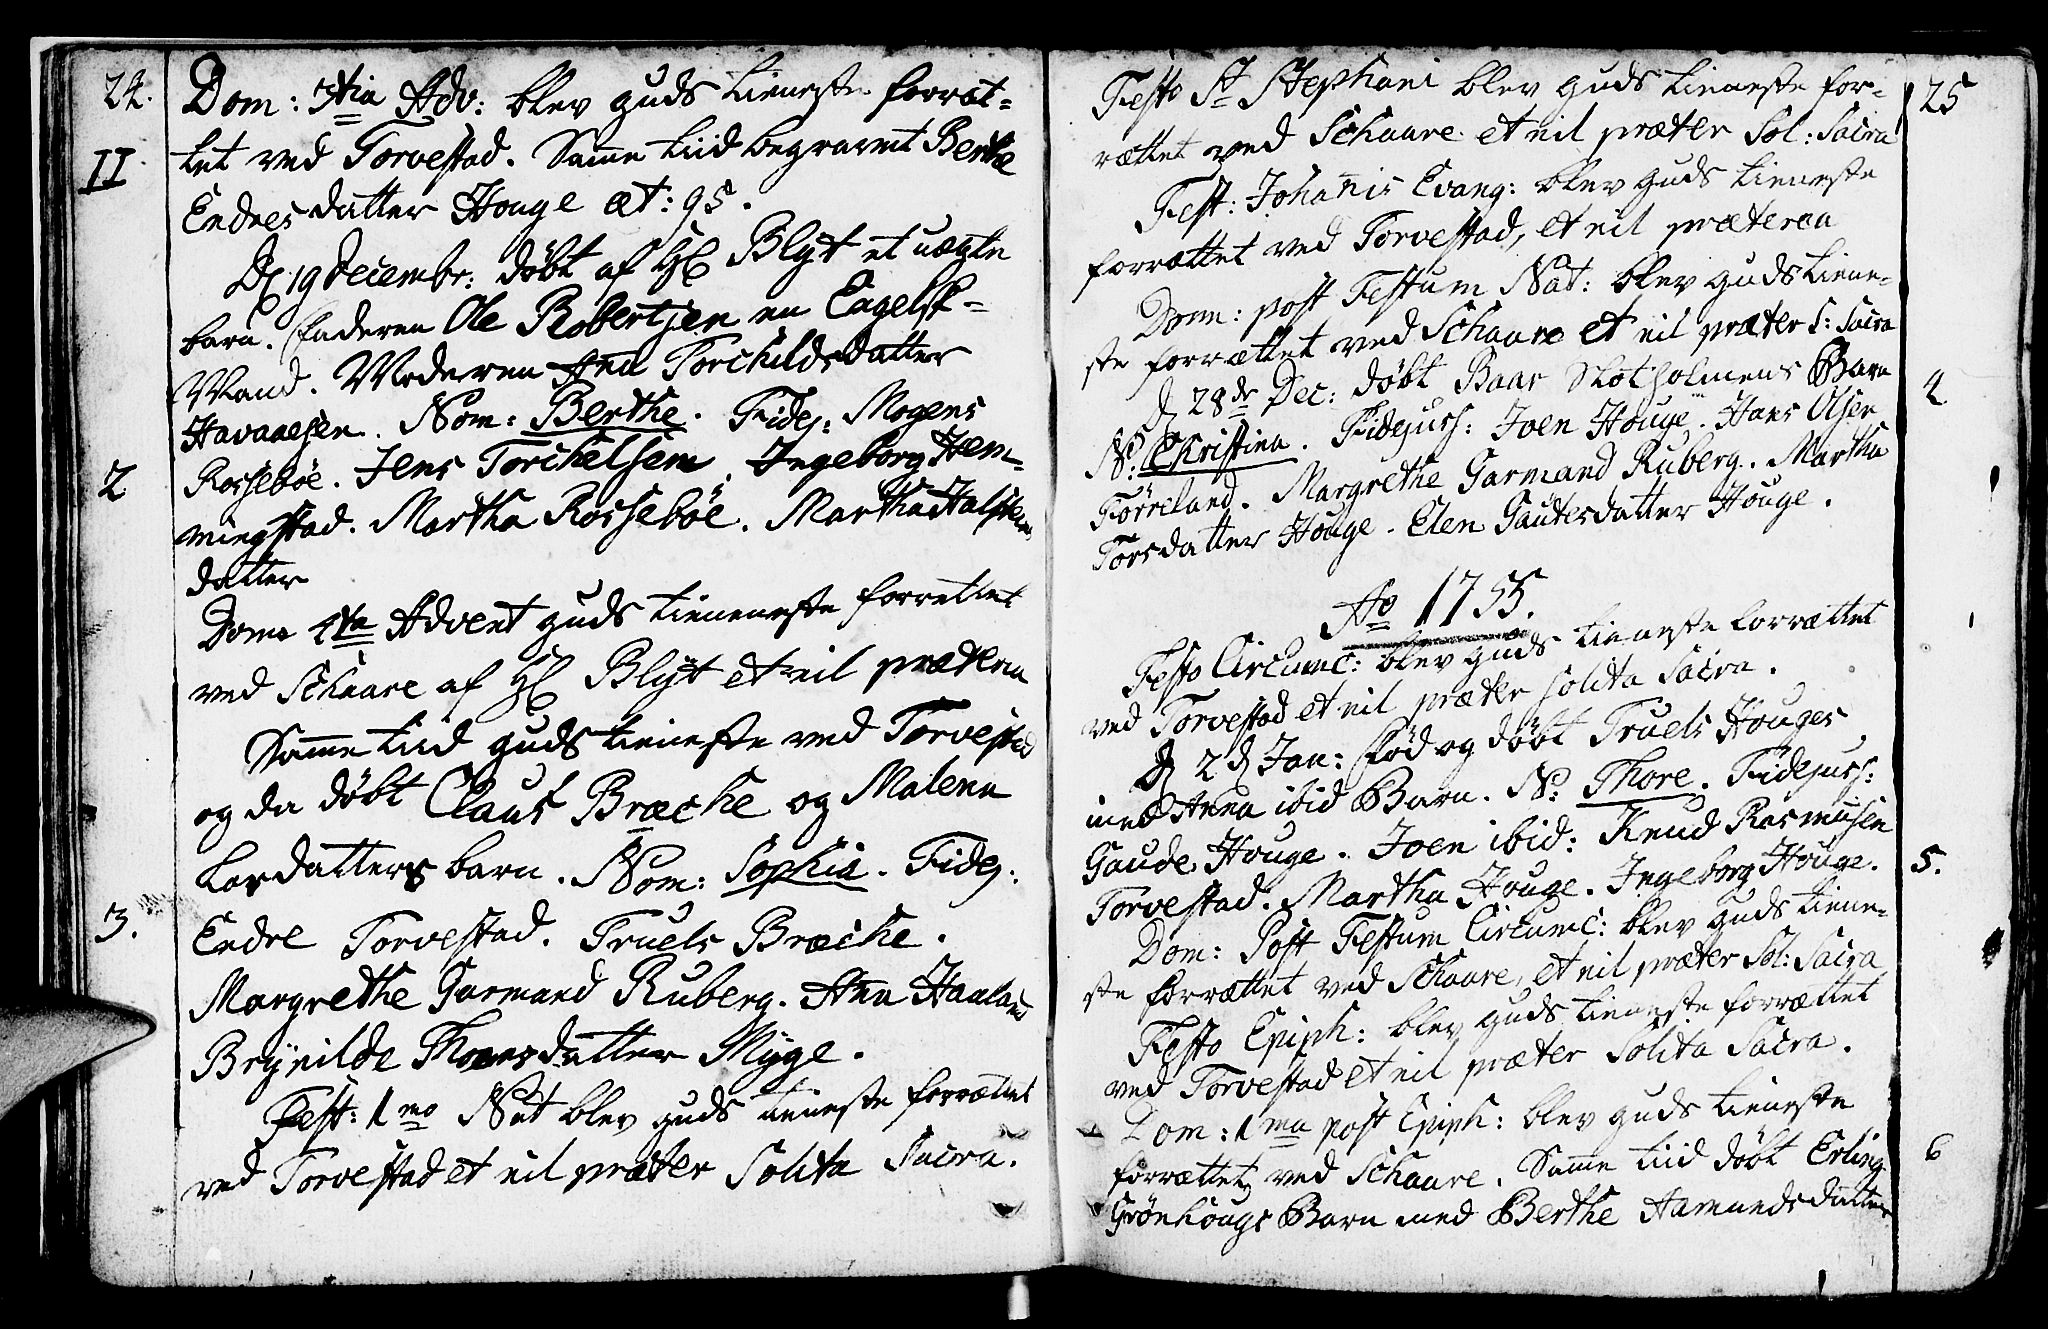 24.
Dom: 3tia Adv: blev guds tieneste forræt-
II.
tet ved Torvestad. Samme tiid begravet Berthe
Endresdatter Houge æt: 95.
D 19 Decembr: döbt af H Blyt et uægte
barn. Faderen Ole Robertsen en Engelsk-
Mand. Moderen Ann Torchildsdatter
Havaaesen. Nom: Berthe. Fidej: Mogens
2
Rossebøe. Jens Torchelsen. Ingeborg Hem-
mingstad. Martha Rossebøe. Martha Halsteens
datter
Dom 4ta Advent guds tieneneste forrettet
ved Schaare af H Blyt et nil præterea
Samme tiid guds tieneste ved Torvestad
og da döbt Claus Bræche og Malena
Lardatters barn. Nom: Sophia. Fidej:
3.
Endre Torvestad. Truels Bræche.
Margrethe Garmand Ruberg. Anna Haaland
Brÿnilde Thoersdatter Myge.
Fest: 1mo Nat blev guds tieneste forrættet
ved Torvestad et nil præter Solita Sacra.
25
Festo St Stephani blev guds tieneste for-
rættet ved Schaare et nil præter Sol: Sacra
Fest: Johanis Evang: blev guds tieneste
forrættet ved Torvestad, et nil præterea
Dom: post Festum Nat: blev guds tiene-
ste forrættet ved Schaare et nil præter S: Sacra
4
d 28de Dec: döbt Baar Slotholmens Barn
N: Christina. Fidejuss: Joen Houge. Hans Olsen
Førreland. Margrethe Garmand Ruberg. Martha
Torsdatter Houge. Elen Gautesdatter Houge.
Ao 1755.
Festo Circumc: blev guds tieneste forrættet
ved Torvestad et nil præter solita Sacra.
D 2d Jan: Fød og döbt Truels Houges
med Anna ibid Barn. N: Thore. Fidejuss:
Gaude Houge. Joen ibid: Knud Rasmusen
5.
Torvestad. Martha Houge. Ingeborg Houge.
Dom: Post Festum Circumc: blev guds tiene-
ste forrættet ved Schaare, et nil præter Sol: Sacra
Festo Epiph: blev guds tieneste forrættet
ved Torvestad et nil præter Solita Sacra.
Dom: 1ma post Epiph: blev guds tieneste
6
forrættet ved Schaare. Samme tiid döbt Erling
Grönhougs Barn med Berthe Aamundsdatter